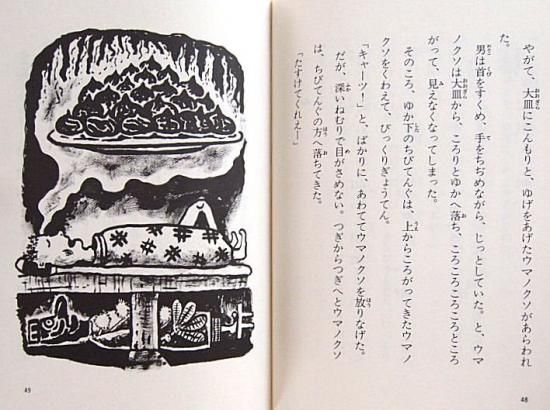 やがて、大皿にこんもりと、ゆげをあげたウマノクソがあらわれ
た。
男は首をすくめ、手をちぢめながら、じっとしていた。と、ウマ
ノクソは大皿から、ころりとゆかへ落ち、ころころころころところ
がって、見えなくなってしまった。
そのころ、ゆか下のちびてんぐは、上からころがってきたウマノ
クソをくわえて、びっくりぎょうてん。
「キャーツ！」と、ばかりに、あわててウマノクソを放りなげた。
だが、深いねむりで目がさめない。つぎからつぎへとウマノクソ
は、ちびてんぐの方へ落ちてきた。
「たすけてくれえー」
48
49